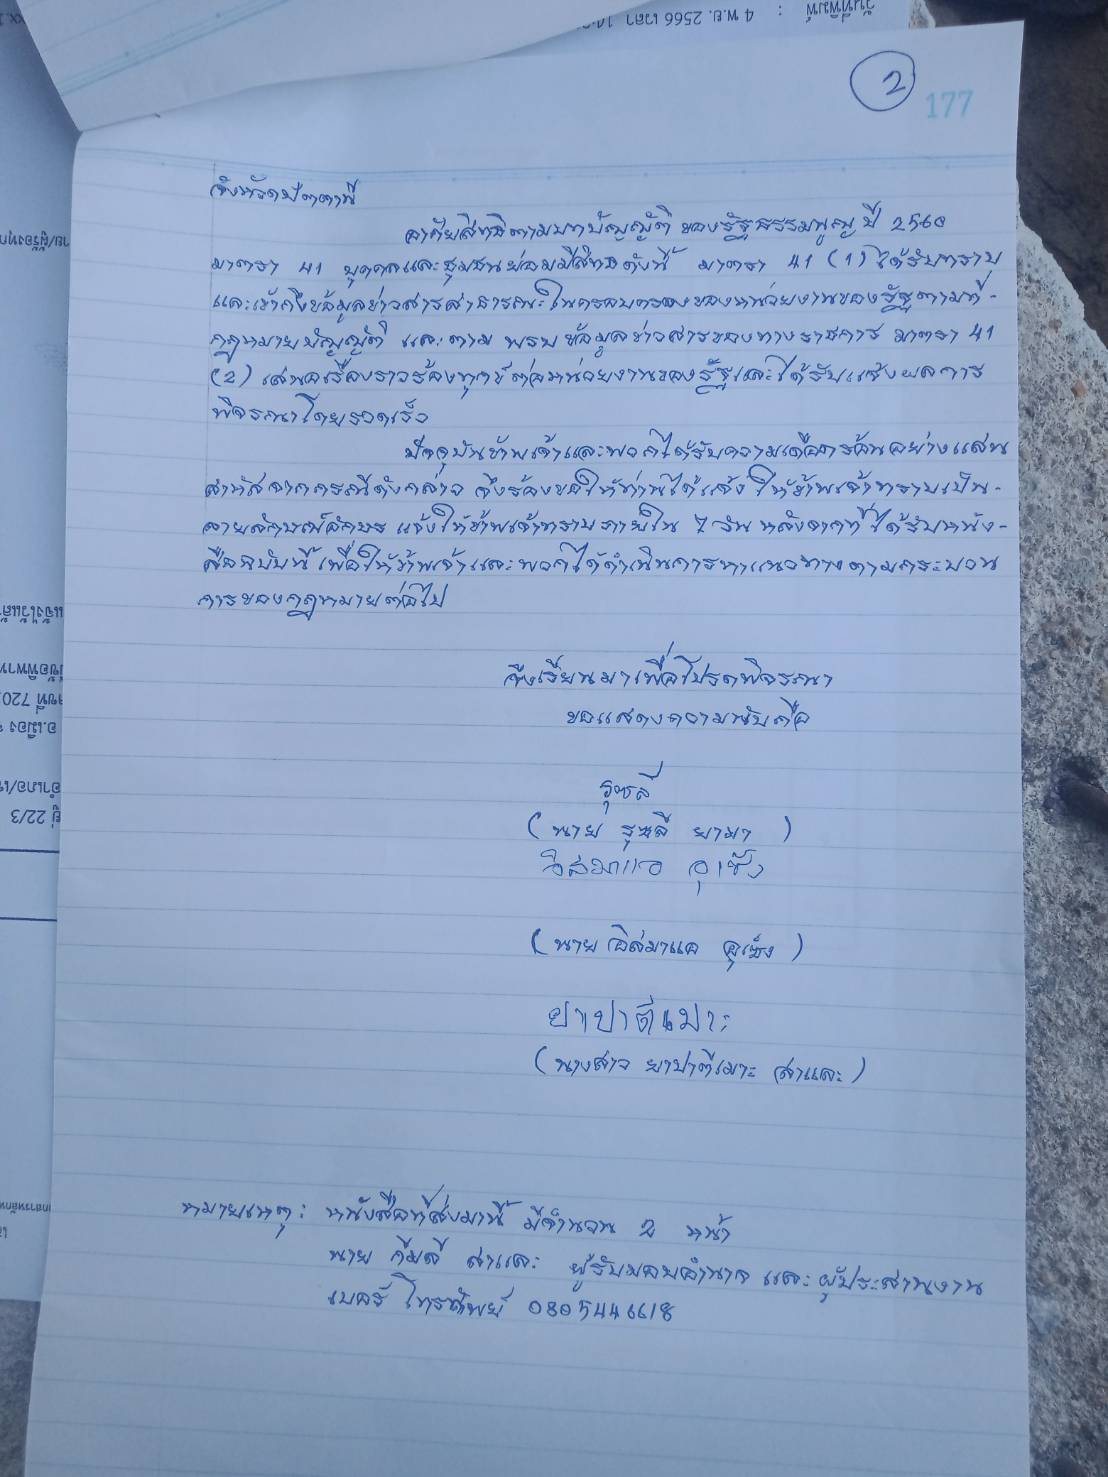 4 พ.ย. 2566 เวลา
2
177
จังหวัดปัตตานี
อาศัยสิทธิตามบทบัญญัติ ของรัฐธรรมนูญ ปี 2560
มาตรา 41 บุคคลและชุมชนย่อมมีสิทธิดังนี้ มาตรา 41 (1) ได้รับทราบ
และเข้าถึงข้อมูลข่าวสารสาธารณะในครอบครองของหน่วยงานของรัฐตามที่-
กฎหมายบัญญัติ และตาม พรบ ข้อมูลข่าวสารของทางราชการ มาตรา 41
(2) เสนอเรื่องราวร้องทุกข์ต่อหน่วยงานของรัฐและได้รับแจ้งผลการ
พิจารณาโดยรวดเร็ว
ปัจจุบันข้าพเจ้าและพวกได้รับความเดือดร้อนอย่างแสน
สาหัสจากกรณีดังกล่าว จึงร้องขอให้ท่านได้แจ้ง ให้ข้าพเจ้าทราบเป็น-
ลายลักษณ์อักษร แจ้งให้ข้าพเจ้าทราบภายใน 7 วัน หลังจากที่ได้รับหนัง-
สือฉบับนี้ เพื่อให้ข้าพเจ้าและพวกได้ดำเนินการหาแนวทางตามกระบวน
การของกฎหมายต่อไป
จึงเรียนมาเพื่อโปรดพิจารณา
ขอแสดงความนับถือ
รุสลี
( นาย รุสลี ยามา )
อิสมาแอ อูเซ็ง
( นาย อิสมาแอ อูเซ็ง )
ยาปาตีเมาะ
( นางสาว ยาปาตีเมาะ สาและ )
หมายเหตุ : หนังสือที่ส่งมานี้ มีจำนวน 2 หน้า
นาย กีมลี สาและ ผู้รับมอบอำนาจ และผู้ประสานงาน
เบอร์ โทรศัพย์ 0805446618